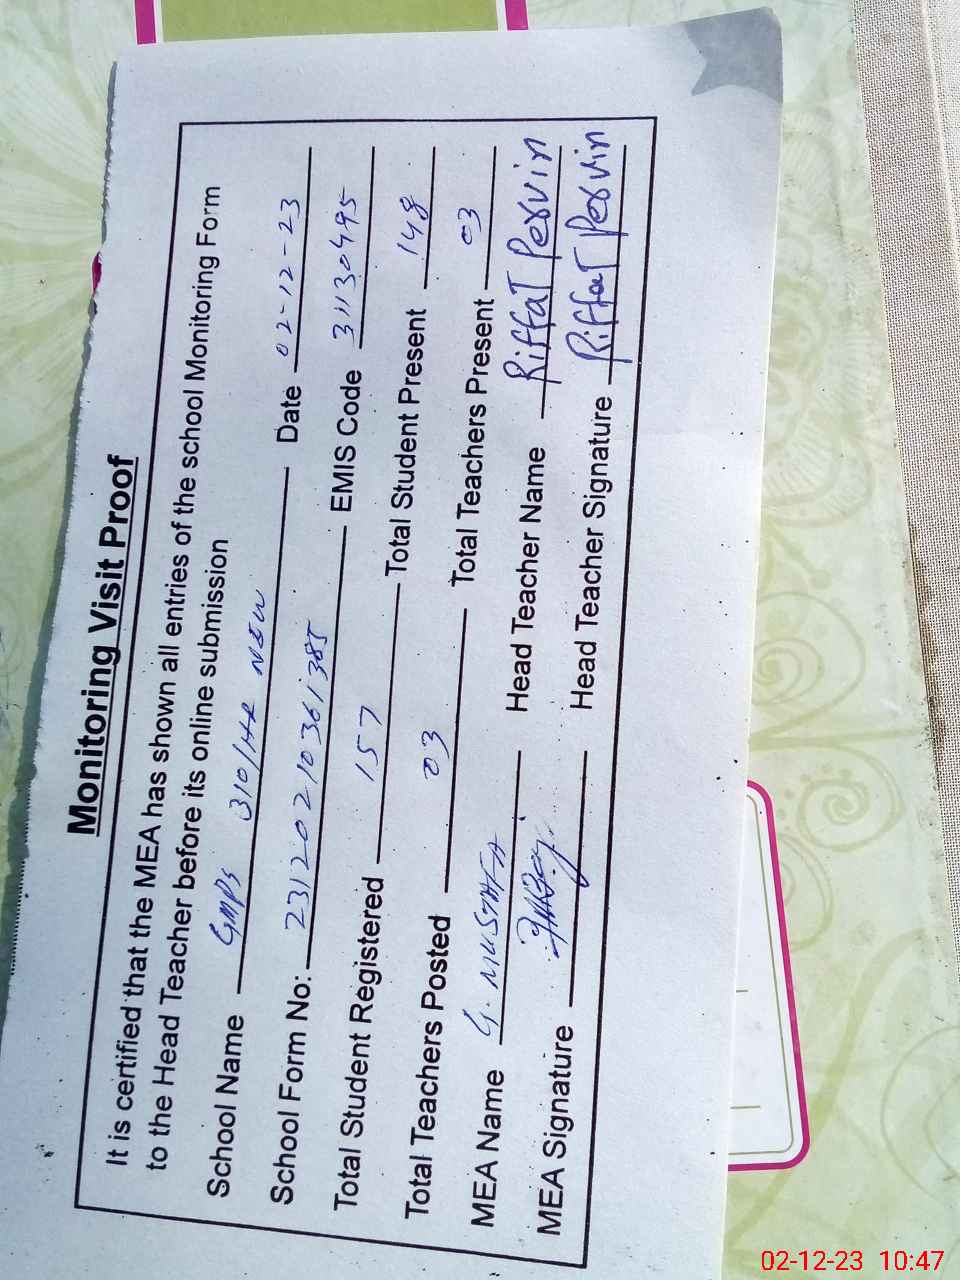 Monitoring Visit Proof
It is certified that the MEA has shown all entries of the school Monitoring Form
to the Head Teacher before its online submission
School Name GMPS 310/HR NEW Date 02-12-23
School Form No: 23120210361385 EMIS Code 31130495
Total Student Registered 157 Total Student Present 148
Total Teachers Posted 03 Total Teachers Present 03
MEA Name G. MUSTAFA Head Teacher Name RiffaT Pervin
MEA Signature Head Teacher Signature RiffaT Pervin
02-12-23 10:47